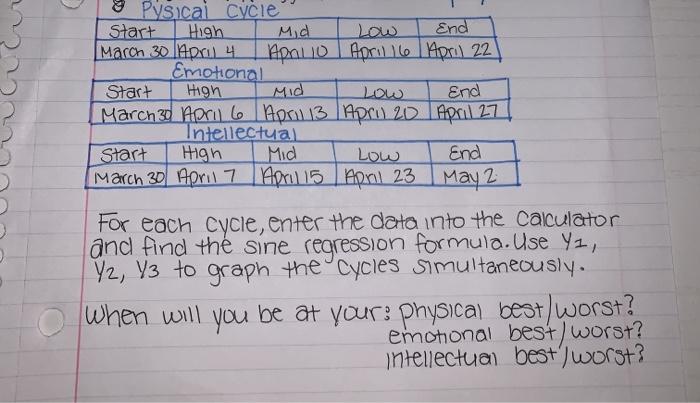 8 Pysical Cycle
Start High Mid Low End
March 30 April 4 April 10 April 16 April 22
Emotional
Start High Mid Low End
March 30 April 6 April 13 April 20 April 27
Intellectual
Start High Mid Low End
March 30 April 7 April 15 April 23 May 2
For each cycle, enter the data into the calculator
and find the sine regression formula. Use Y1,
Y2, Y3 to graph the cycles simultaneously.
When will you be at your: physical best/worst?
emotional best/worst?
intellectual best/worst?